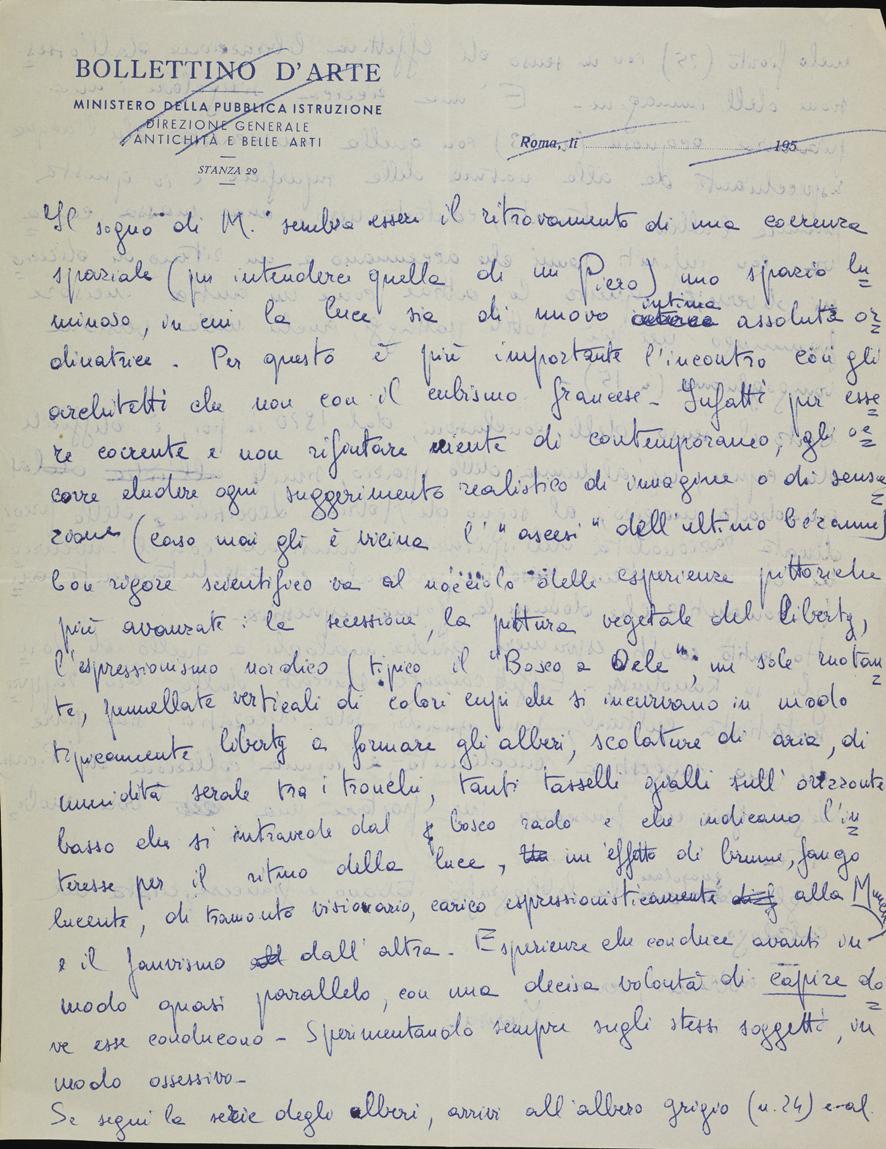 BOLLETTINO D'ARTE
MINISTERO DELLA PUBBLICA ISTRUZIONE
DIREZIONE GENERALE
ANTICHITÀ E BELLE ARTI
STANZA 29
Roma, li 195
Il sogno di M." sembra essere il ritrovamento di una coerenza
spaziale (per intenderci quella di un Piero) uno spazio lu=
minoso, in cui la luce sia di nuovo intima assoluta or=
dinatrice. Per questo è più importante l'incontro con gli
architetti che non con il cubismo francese - Infatti per esse=
re coerente e non rifiutare niente di contemporaneo, gli oc=
corre eludere ogni suggerimento realistico di immagine o di sensa=
zione (caso mai gli è vicina l'"ascesi" dell'ultimo Cézanne)
Con rigore scientifico va al nocciolo delle esperienze pittoriche
più avanzate: la secessione, la pittura vegetale del liberty,
l'espressionismo nordico (tipico il "Bosco a Oele"; un sole ruotan=
te, pennellate verticali di colori cupi che si incurvano in modo
tipicamente liberty a formare gli alberi, scolature di aria, di
umidità serale tra i tronchi, tanti tasselli gialli sull'orizzonte
basso che si intravede dal bosco rado e che indicano l'in=
teresse per il ritmo della luce, un effetto di brume, fango
lucente, di tramonto visionario, carico espressionisticamente alla Munch)
e il fauvismo dall'altra. Esperienze che conduce avanti in
modo quasi parallelo, con una decisa volontà di capire do=
ve esse conducono - Sperimentandolo sempre sugli stessi soggetti, in
modo ossessivo-
Se segui la serie degli alberi, arrivi all'albero grigio (n. 24) e al